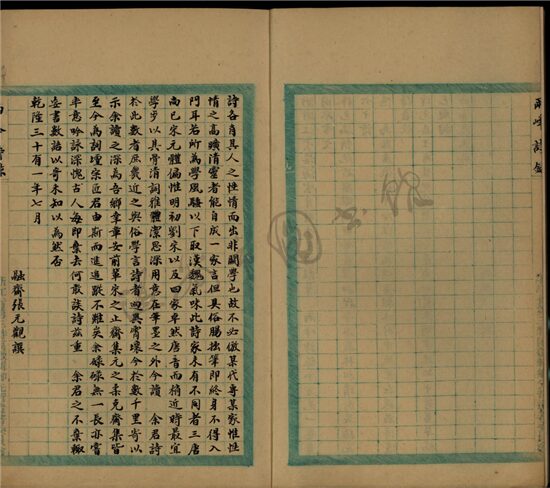 詩各自具人之性情而出非關學也故不必倣某代專某家惟性
情之高曠清靈者能自成一家言但具俗腸拙筆即終身不得入
門耳若所為學風騷以下取漢魏氣味此詩家未有不同者三唐
尚已宋元體偏惟明初劉宋以及四家卓然唐音而稍近時最宜
學步以其骨清詞雅體潔思深用意在筆墨之外今讀 余君詩
於此數者庶幾近之與俗學言詩者 異霄壤今於數千里寄以
示余讀之深為吾鄉幸章安前輩宋之止齋集元之柔克齋集皆
至今為詞壇宗匠君由斯而進追蹤不難矣余碌碌無一長亦嘗
率意吟詠深愧古人每即棄去何敢談詩茲重 余君之不棄輙
妄書數語以寄未知以為然否
乾隆三十有一年七月
融齋張元觀譔
兩峰詩鈔